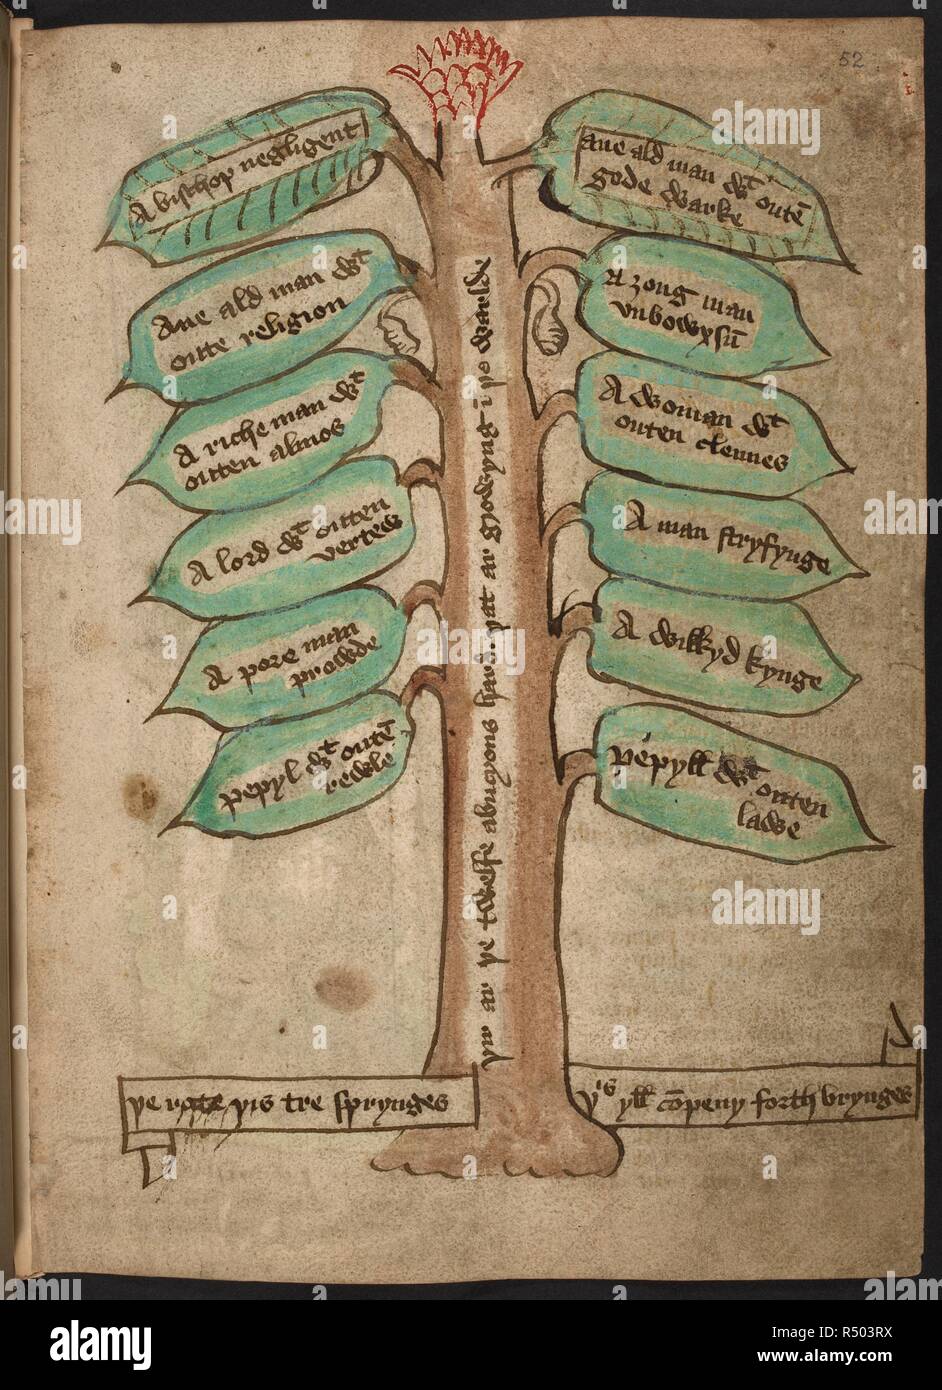 52
A bischop negligent
Ane ald man wt
oute religion
A riche man wt
outen almos
A lord wt outen
vertew
A pore man
prowde
pepyl wt outē
rewle
ane ald man wt outē
gode warke
A zong man
vnbowxsū
A woman wt
outen clennes
A man stryfynge
A wikkyd kynge
pepyll wt outen
lawe
yir ar ye twelfe abucyons hard. yat ar growyng ī yo warlde
ye rote yis tre sprynges
yis yll cōpeny forth brynges
alamy
Image ID: R503RX
www.alamy.com